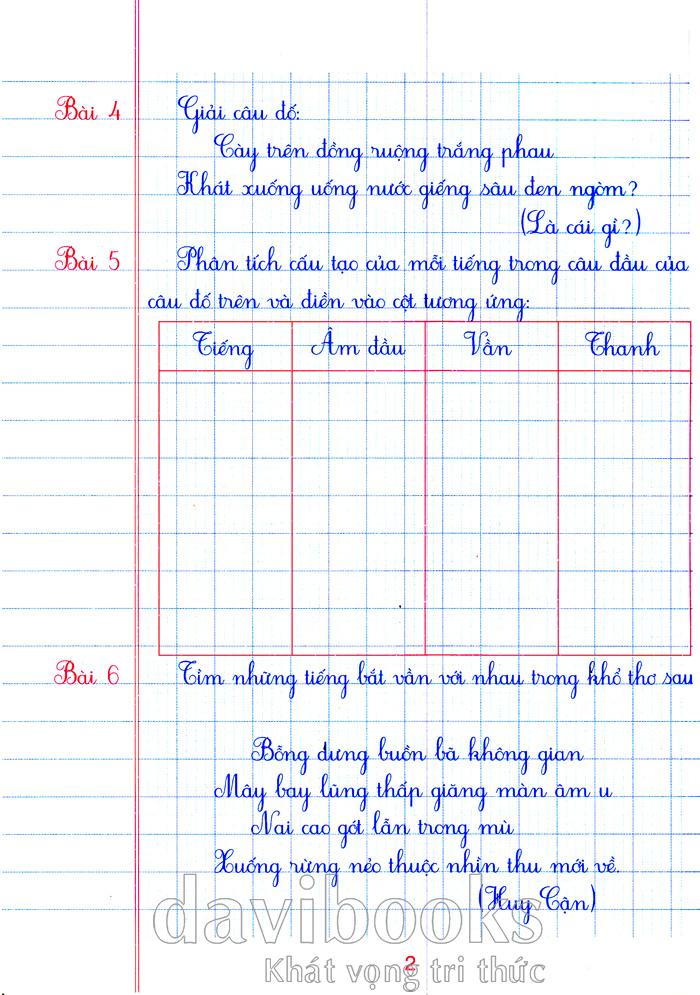 Bài 4 Giải câu đố:
Cày trên đồng ruộng trắng phau
Khát xuống uống nước giếng sâu đen ngòm?
(Là cái gì?)
Bài 5 Phân tích cấu tạo của mỗi tiếng trong câu đầu của
câu đố trên và điền vào cột tương ứng:
Tiếng Âm đầu Vần Thanh
Bài 6 Tìm những tiếng bắt vần với nhau trong khổ thơ sau
Bỗng dưng buồn bã không gian
Mây bay lũng thấp giăng màn âm u
Nai cao gót lẫn trong mù
Xuống rừng nẻo thuộc nhìn thu mới về.
(Huy Cận)
davibooks
Khát vọng tri thức
2